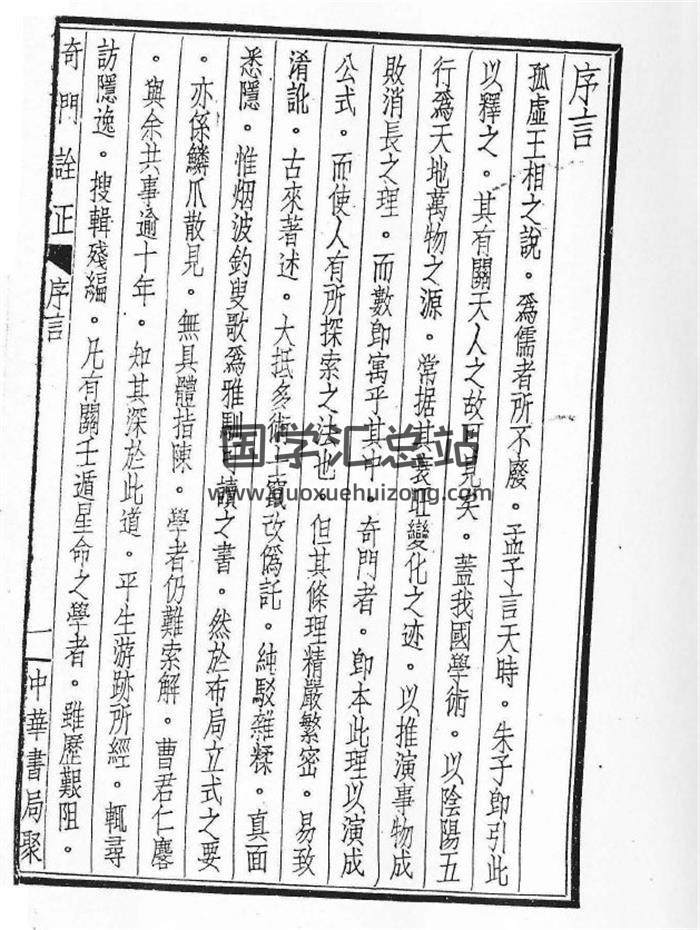 序言
孤虛王相之說。爲儒者所不廢。孟子言天時。朱子卽引此
以釋之。其有關天人之故可見矣。蓋我國學術。以陰陽五
行爲天地萬物之源。常据其衰旺變化之迹。以推演事物成
敗消長之理。而數卽寓乎其中。奇門者。卽本此理以演成
公式。而使人有所探索之法也。但其條理精嚴繁密。易致
淆訛。古來著述。大抵多術士竄改僞託。純駁雜糅。真面
悉隱。惟烟波釣叟歌爲雅馴可讀之書。然於布局立式之要
。亦係鱗爪散見。無具體指陳。學者仍難索解。曹君仁麐
。與余共事逾十年。知其深於此道。平生游跡所經。輒尋
訪隱逸。搜輯殘編。凡有關壬遁星命之學者。雖歷艱阻。
奇門詮正 序言 一 中華書局聚
国学汇总站
www.guoxuehuizong.com